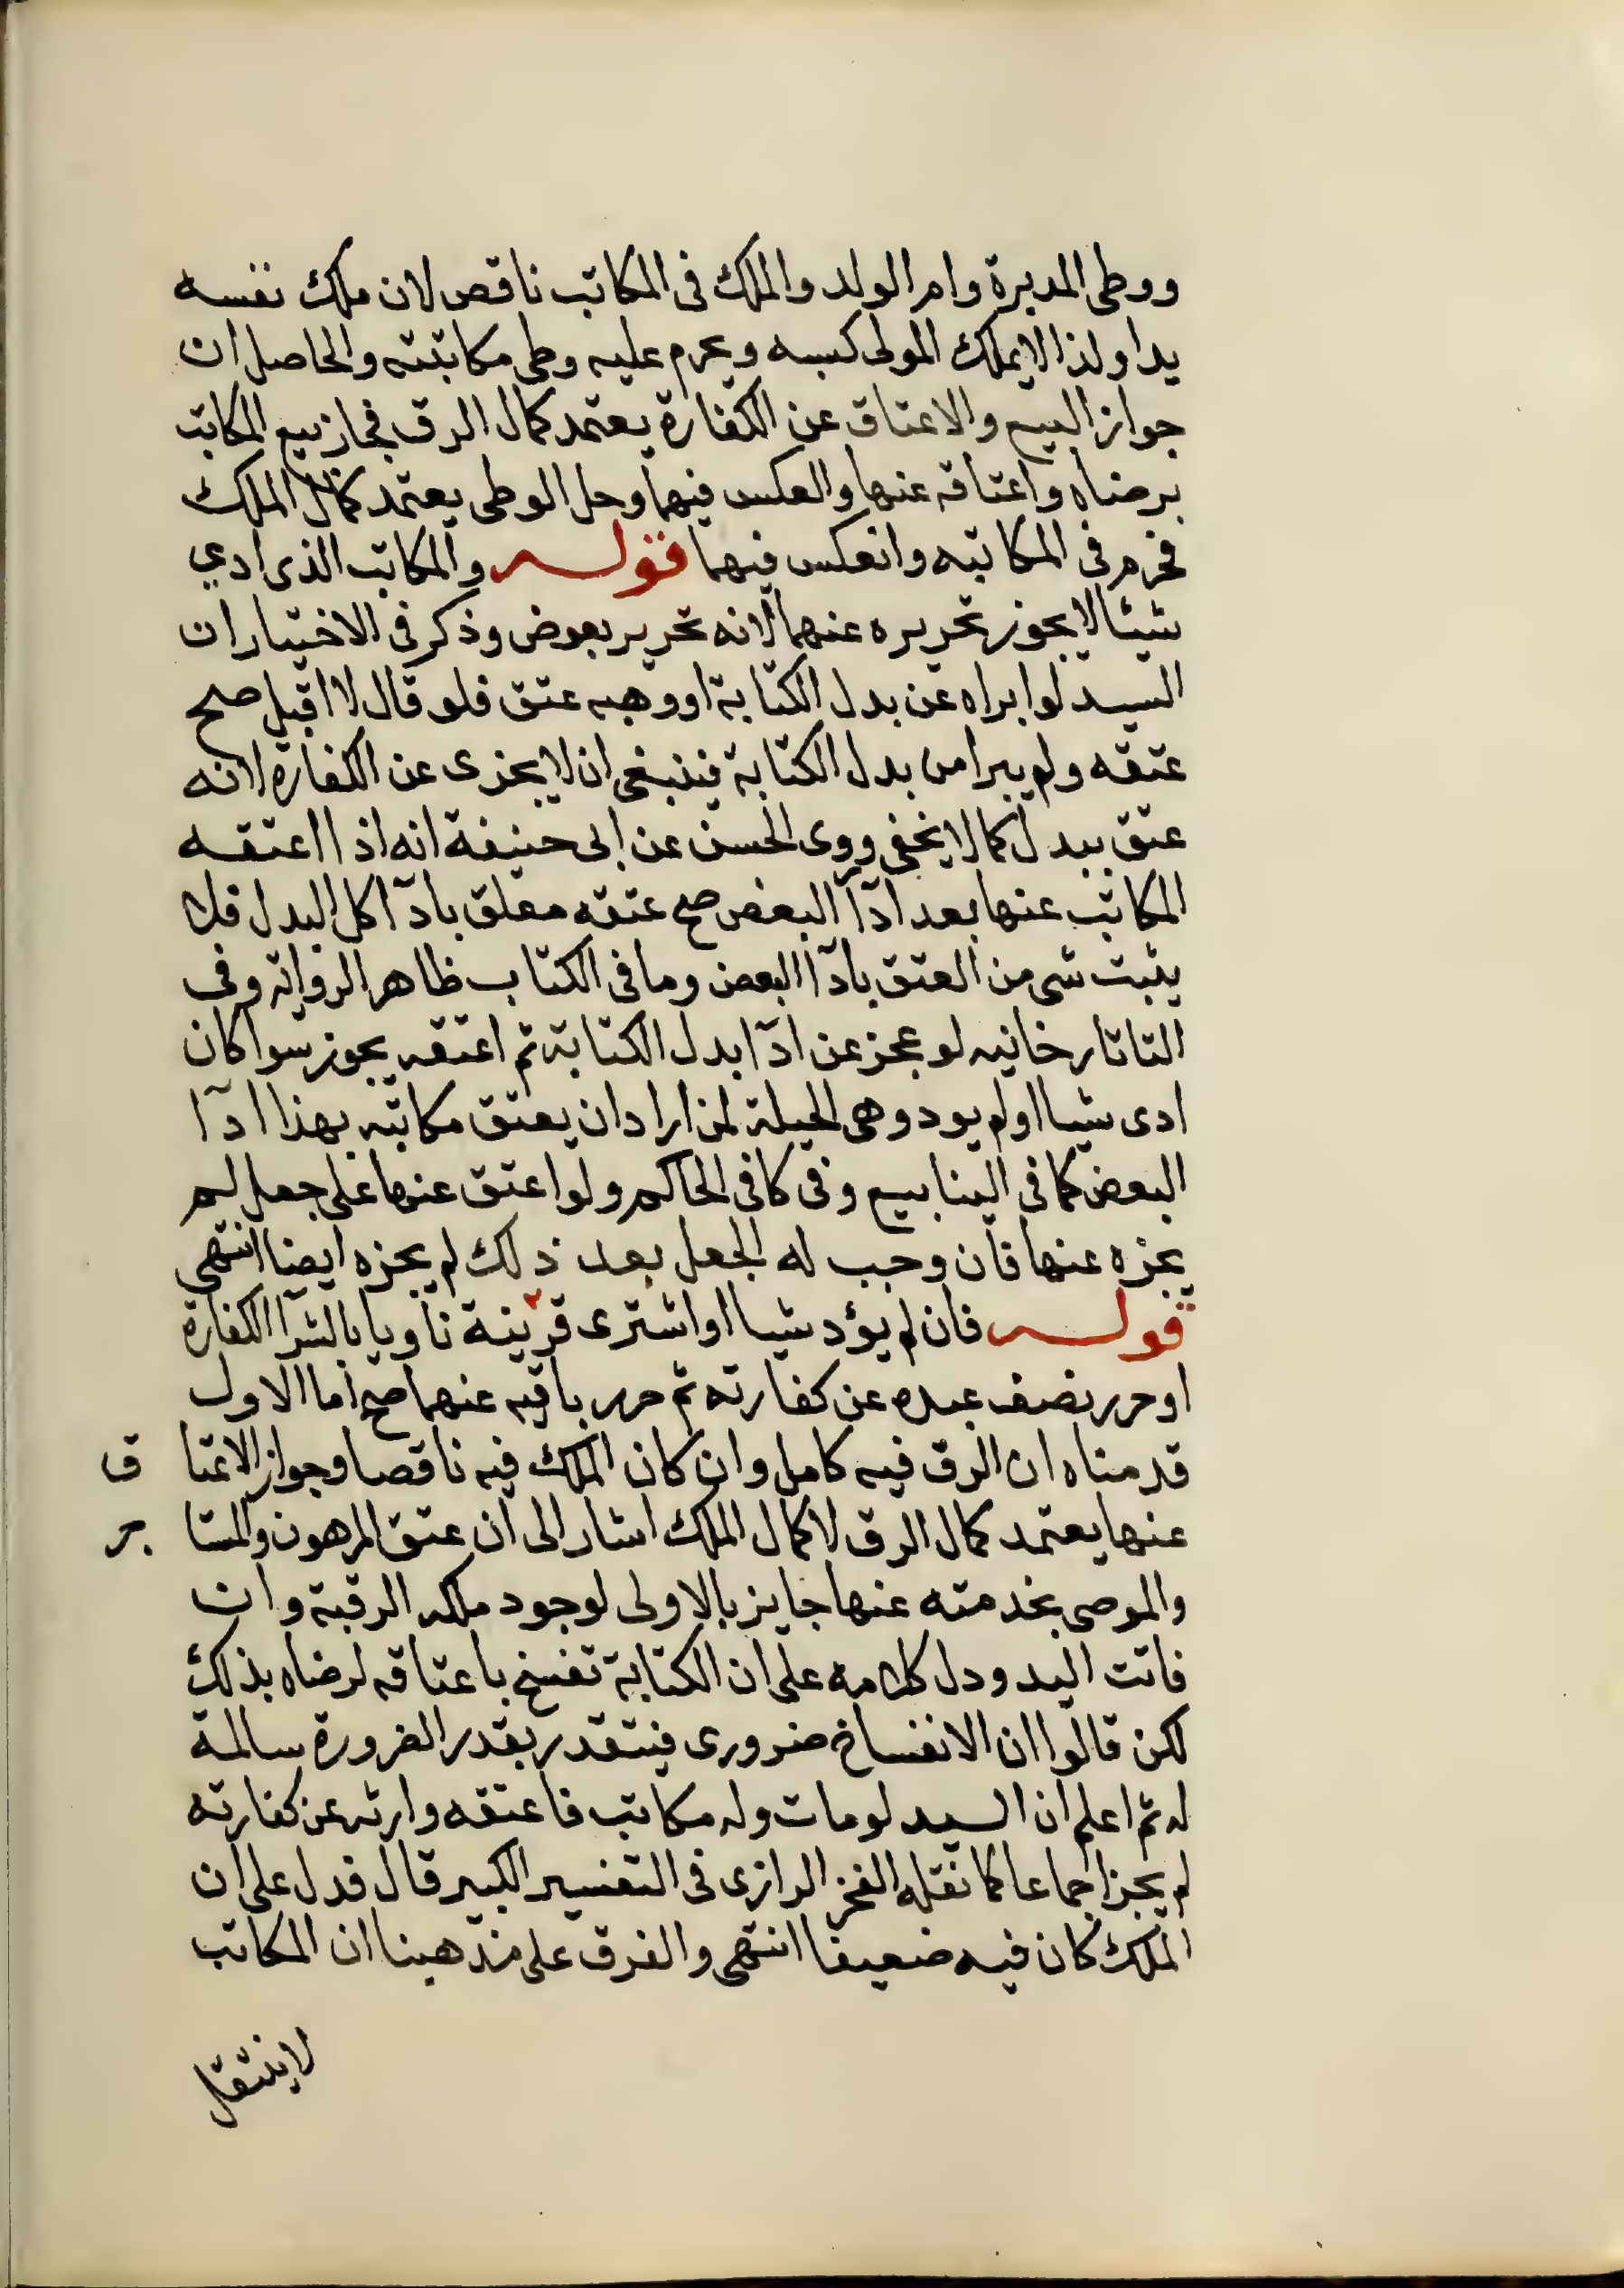 ووطى المدبرة وام الولد والملك فى المكاتب ناقص لان ملك نفسه
يدا ولذا لا يملك المولى كسبه ويحرم عليه وطى مكاتبته والحاصل ان
جواز البيع والاعتاق عن الكفارة يعتمد كمال الرق فجاز بيع المكاتب
برضاه واعتاقه عنها والعكس فيهما وحل الوطى يعتمد كمال الملك
فحرم فى المكاتبه وانعكس فيهما قوله والمكاتب الذى ادي
شيئا لا يجوز تحريره عنهما لانه تحرير بعوض وذكر فى الاختيار ان
السيد لو ابراه عن بدل الكتابة او وهبه عتق فلو قال لا اقبل صح
عتقه ولم يبرا من بدل الكتابة فينبغى ان لا يجزى عن الكفارة لانه
عتق ببدل كما لا يخفى وروى الحسن عن ابى حنيفة انه اذا اعتقه
المكاتب عنها بعد اداآ البعض صح عتقه معلق باداآ كل البدل فلا
يثبت شى من العتق باداآ البعض وما فى الكتاب ظاهر الرواية وفى
التاتارخانيه لو عجز عن اداآ بدل الكتابة ثم اعتقه يجوز سوا كان
ادى شيا او لم يود وهى الحيلة لمن اراد ان يعتق مكاتبه بهذا اداآ
البعض كما فى الينابيع وفى كافى الحاكم ولو اعتق عنها على جعل لم
يجزه عنها فان وجب له الجعل بعد ذلك لم يجزه ايضا انتهى
قوله فان لم يؤد شيا او اشترى قرينة ناويا بالشرا الكفارة
او حرر نصف عبده عن كفارته ثم حرر باقيه عنهما صح اما الاول
قدمناه ان الرق فيه كامل وان كان الملك فيه ناقصا وجواز الاعتا ق
عنها يعتمد كمال الرق لا كمال الملك اشار الى ان عتق المرهون والمستا جر
والموصى بخدمته عنها جايز بالاولى لوجود ملكه الرقبة وان
فاتت اليد ودل كلامه على ان الكتابة تفسخ باعتاقه لرضاه بذلك
لكن قالوا ان الانفساخ ضرورى فيتقدر بقدر الضرورة سالمة
له ثم اعلم ان السيد لو مات وله مكاتب فاعتقه وارثه عن كفارته
لم يجز اجماعا كما نقله الفخر الرازى فى التفسير الكبير قال فدل على ان
الملك كان فيه ضعيفا انتهى والفرق على مذهبنا ان المكاتب
لا ينتقل